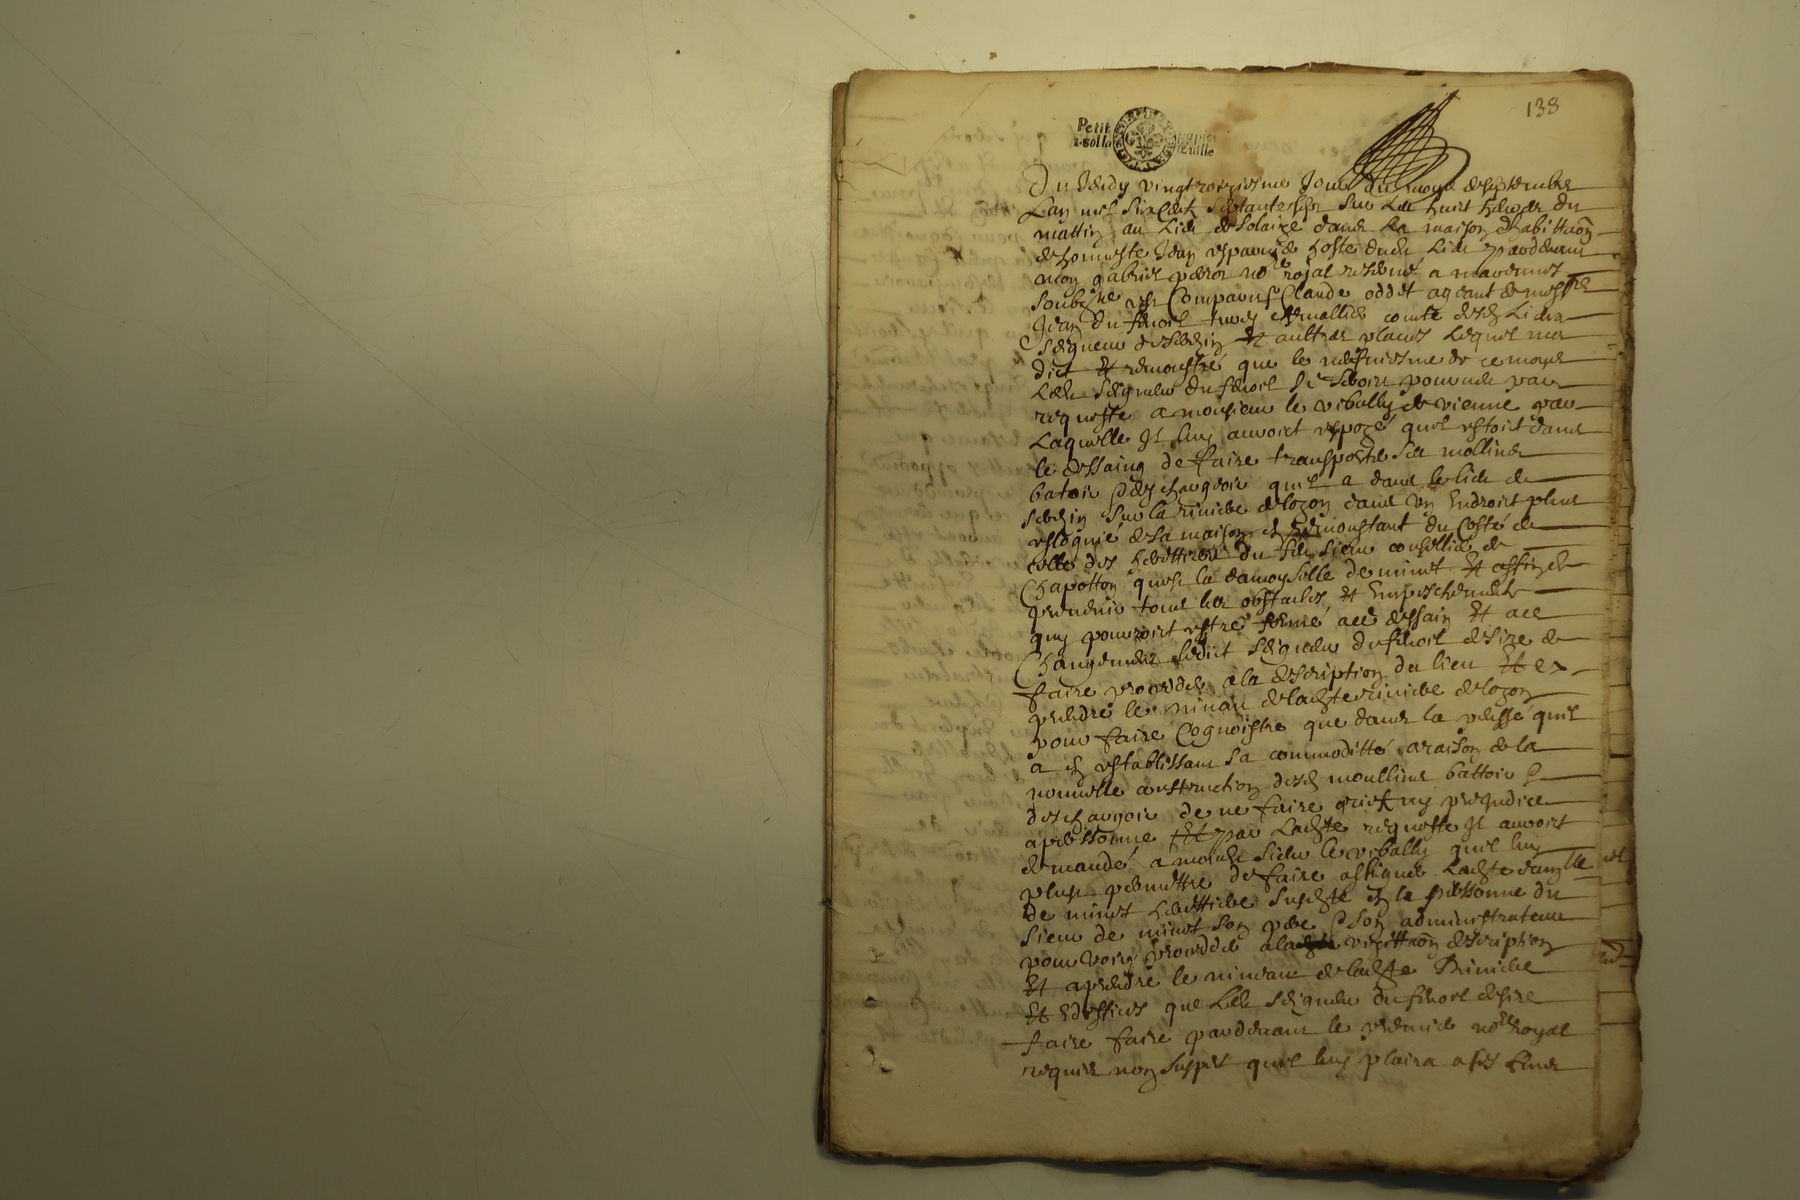 138
Petit papier
2 sol la feuille
Du Jeudy vingt troiziesme Jour du moys de septembre
Lan mil six cent septante six sur les huict heures du
mattin au Lieu de Solaize dans La maison dhabittaon
de honneste Jean hoste dudt Lieu pardevant
moy gabriel no.re royal resident a marennes
soubzne est Comparu Sr Claude oddet ageant de messire
Jean du fenoil comte desd Lieux
Seigneur de Serezin Et aultres places Lequel nous
dict Et remonstré que le neufviesme de ce moys
Ledt Seigneur du fenoil se seroit pourveu par
requeste a monsieur le vibally de vienne par
Laquelle Jl luy auroit expozé quil estoit dans
le dessaing de faire transporter ses mollins
batoir Et quil a dans le lieu de
Serezin Sur la riviere de lozon dans un Endroit plus
esloigné de sa maison et En remonstant du Costé de
celle des herittiers du feu sieur conseillier de
Chapotton quest la damoyselle de mimet Et affin de
prevenir tous les obstacles Et Empeschements
quy pourroict estre formé a ce dessain Et a ce
Changement ledict Seigneur du fenoil desire de
faire proceder a la description du lieu Et a
prendre le niveau de ladte riviere de lozon
pour faire Cognoistre que dans la pensée quil
a dy establissant sa commoditté a raison de la
nouvelle construction desd moullins battoir Et
de ne faire grief ny prejudice
a personne Et par Ladte requeste Jl auroict
demandé a mondt sieur le vibally quil luy
pleust permettre de faire assigner Ladte damlle
de mimet herittiere susdte En la personne du
sieur de mimet son pere Et son administrateur
pour voir proceder a la vizittaon description
Et a prendre le niveau de ladte Riviere
Et Ediffices que Ledt Seigneur du fenoil desire
faire faire pardevant le premier no.re Royal
requis non suspet quil luy plaira a ses fins